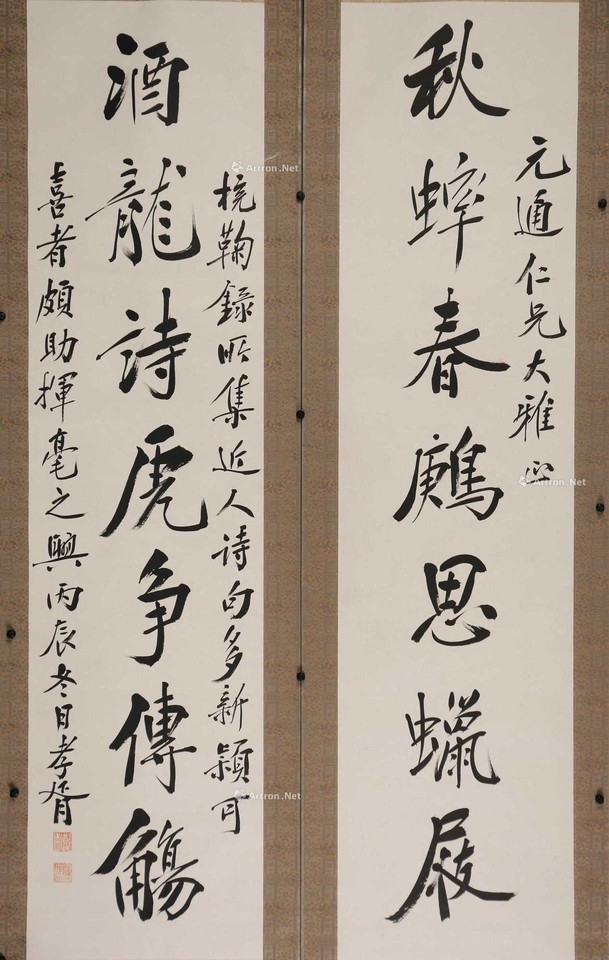 元通仁兄大雅正
秋蟀春鶊思蠟屐
梡鞠録所集近人詩句多新穎可
酒龍詩虎争傳觴
喜者頗助揮毫之興丙辰冬日孝胥
Artron.Net
Artron.Net
Artron.Net
Artron.Net